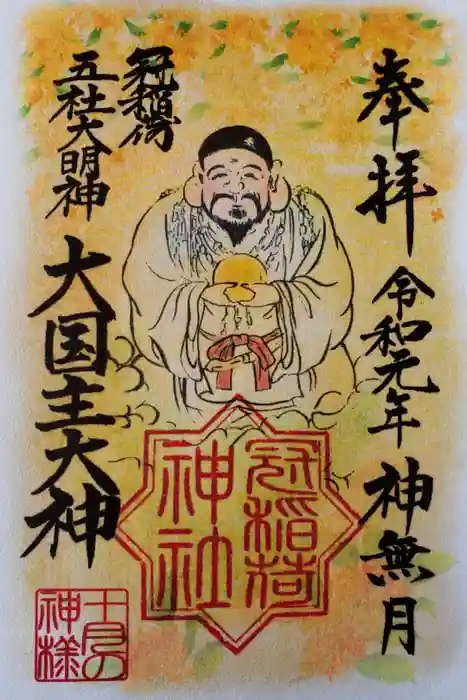 奉拝
令和元年
神無月
冠稲荷
五社大明神
大国主大神
冠稲荷
神社
十月の
神様